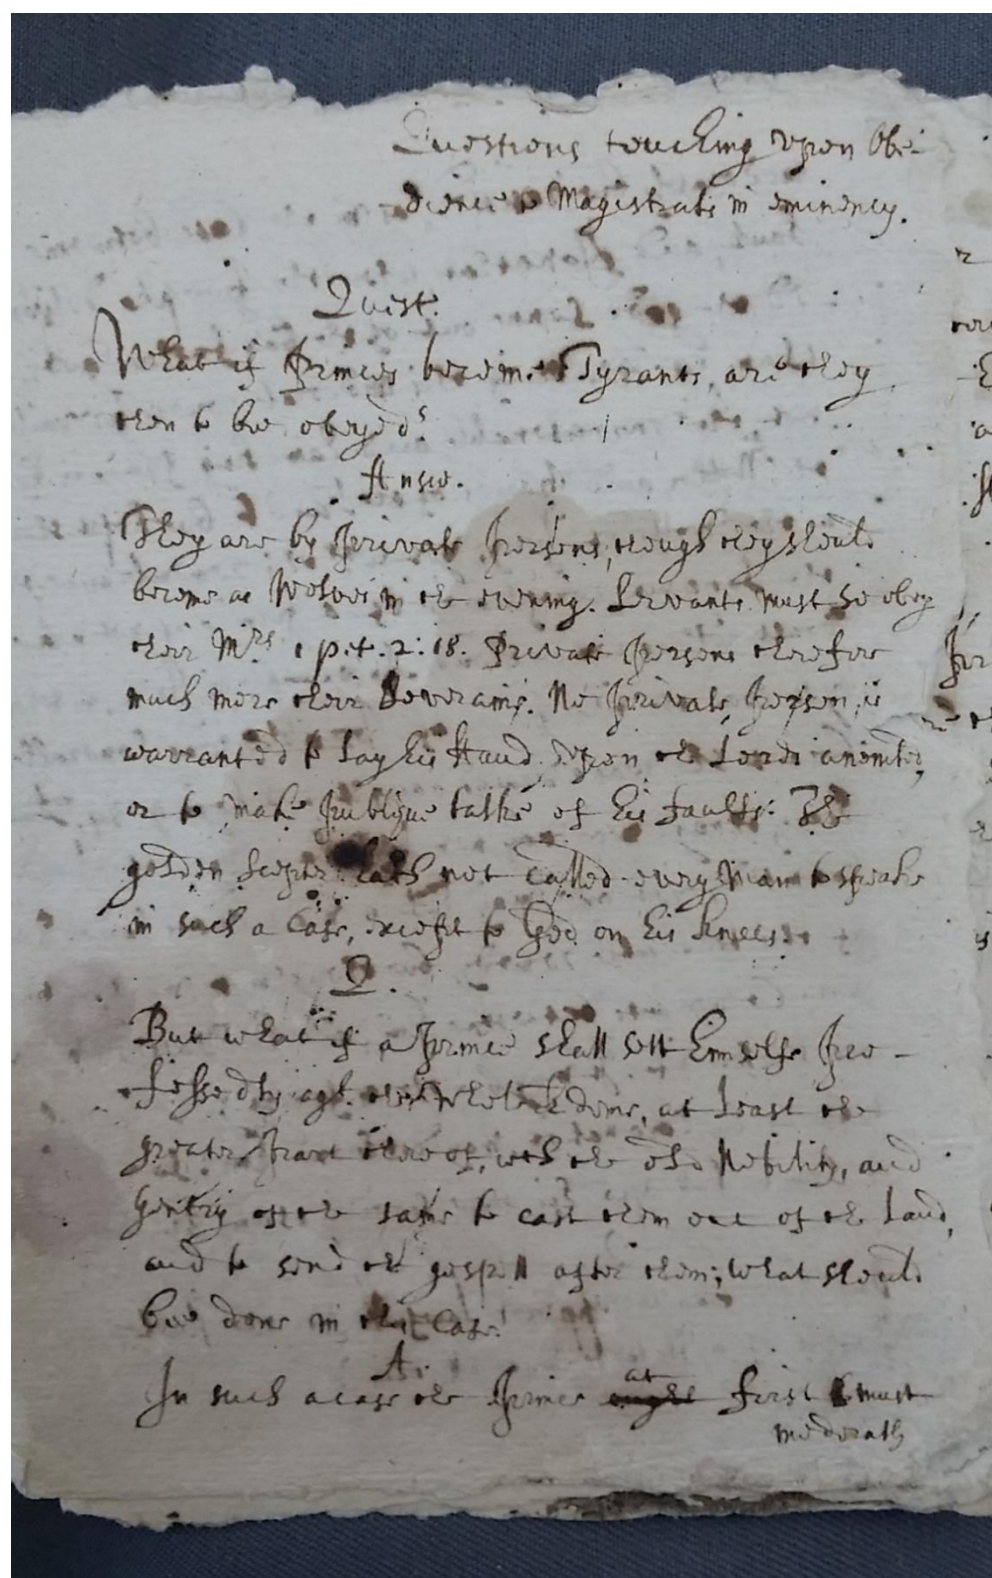 Questions touching vpon Obe-
dience to Magistrats in eminency.
Quest.
What if Princes become Tyrants, are they
then to bee obeyed?
Answ.
They are by private persons, though they should
become as Wolves in the evening. Servants must so obey
their Mrs 1 pet. 2: 18. Private persons therefore
much more their Soverains. No private person is
warranted to lay his Hand vpon the Lords anointed,
or to make publique talke of his faults: The
golden Scepter hath not called every Man to speake
in such a Case, except to God on his knees.
Q.
But what if a prince shall sett himselfe pro-
fessedly agt. the whole Kdome, at least the
greater part thereof, with the old Nobility, and
Gentry of the same to cast them out of the Land,
and to send the gospell after them; what should
bee done in this Case?
A.
In such a case the prince at first must
moderatly